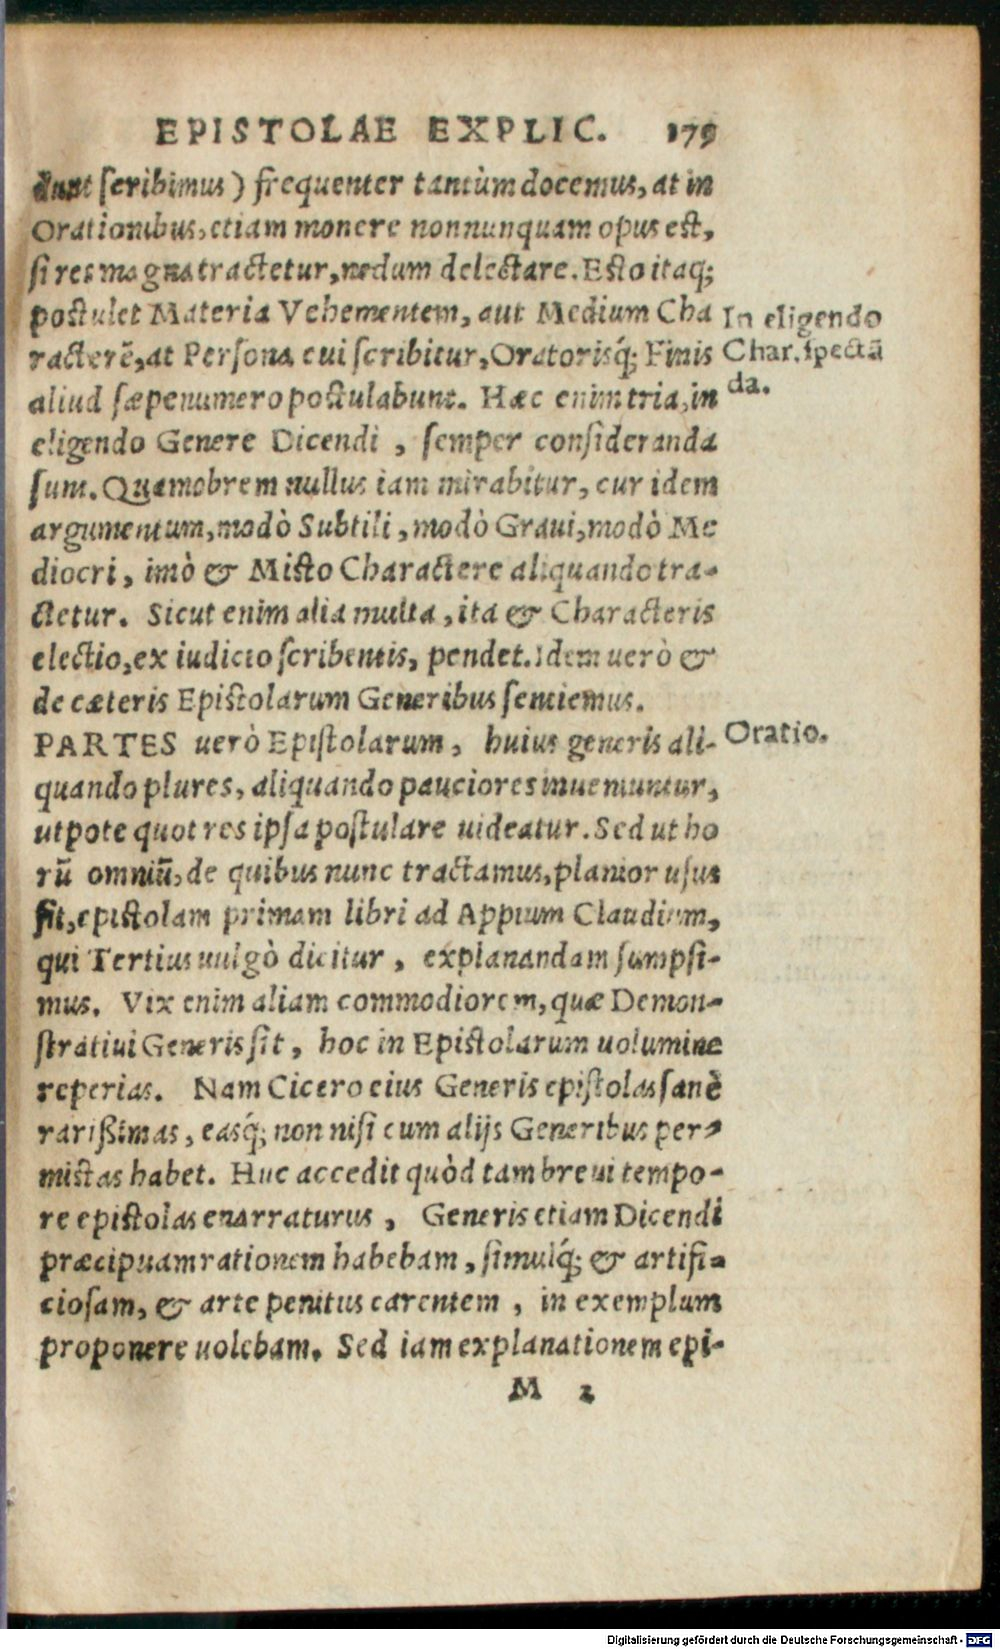 EPISTOLAE EXPLIC. 179
dunt scribimus) frequenter tantùm docemus, at in
Orationibus, etiam monere nonnunquam opus est,
si res magna tractetur, nedum delectare. Esto itaq;
postulet Materia Vehementem, aut Medium Cha
racterē, at Persona cui scribitur, Oratorisq́; Finis
aliud sæpenumero postulabunt. Hæc enim tria, in
eligendo Genere Dicendi, semper consideranda
sunt. Quamobrem nullus iam mirabitur, cur idem
argumentum, modò Subtili, modò Graui, modò Me
diocri, imò & Misto Charactere aliquando tra-
ctetur. Sicut enim alia multa, ita & Characteris
electio, ex iudicio scribentis, pendet. Idem uerò &
de cæteris Epistolarum Generibus sentiemus.
In eligendo
Char. spectā
da.
PARTES uerò Epistolarum, huius generis ali-
quando plures, aliquando pauciores inueniuntur,
utpote quot res ipsa postulare uideatur. Sed ut ho
rū omniū, de quibus nunc tractamus, planior usus
fit, epistolam primam libri ad Appium Claudium,
qui Tertius uulgò dicitur, explanandam sumpsi-
mus. Vix enim aliam commodiorem, quæ Demon-
stratiui Generis sit, hoc in Epistolarum uolumine
reperias. Nam Cicero eius Generis epistolas sanè
rarißimas, easq́; non nisi cum alijs Generibus per-
mistas habet. Huc accedit quòd tam breui tempo-
re epistolas enarraturus, Generis etiam Dicendi
præcipuam rationem habebam, simulq́; & artifi-
ciosam, & arte penitus carentem, in exemplum
proponere uolebam. Sed iam explanationem epi-
Oratio.
M 2
Digitalisierung gefördert durch die Deutsche Forschungsgemeinschaft - DFG